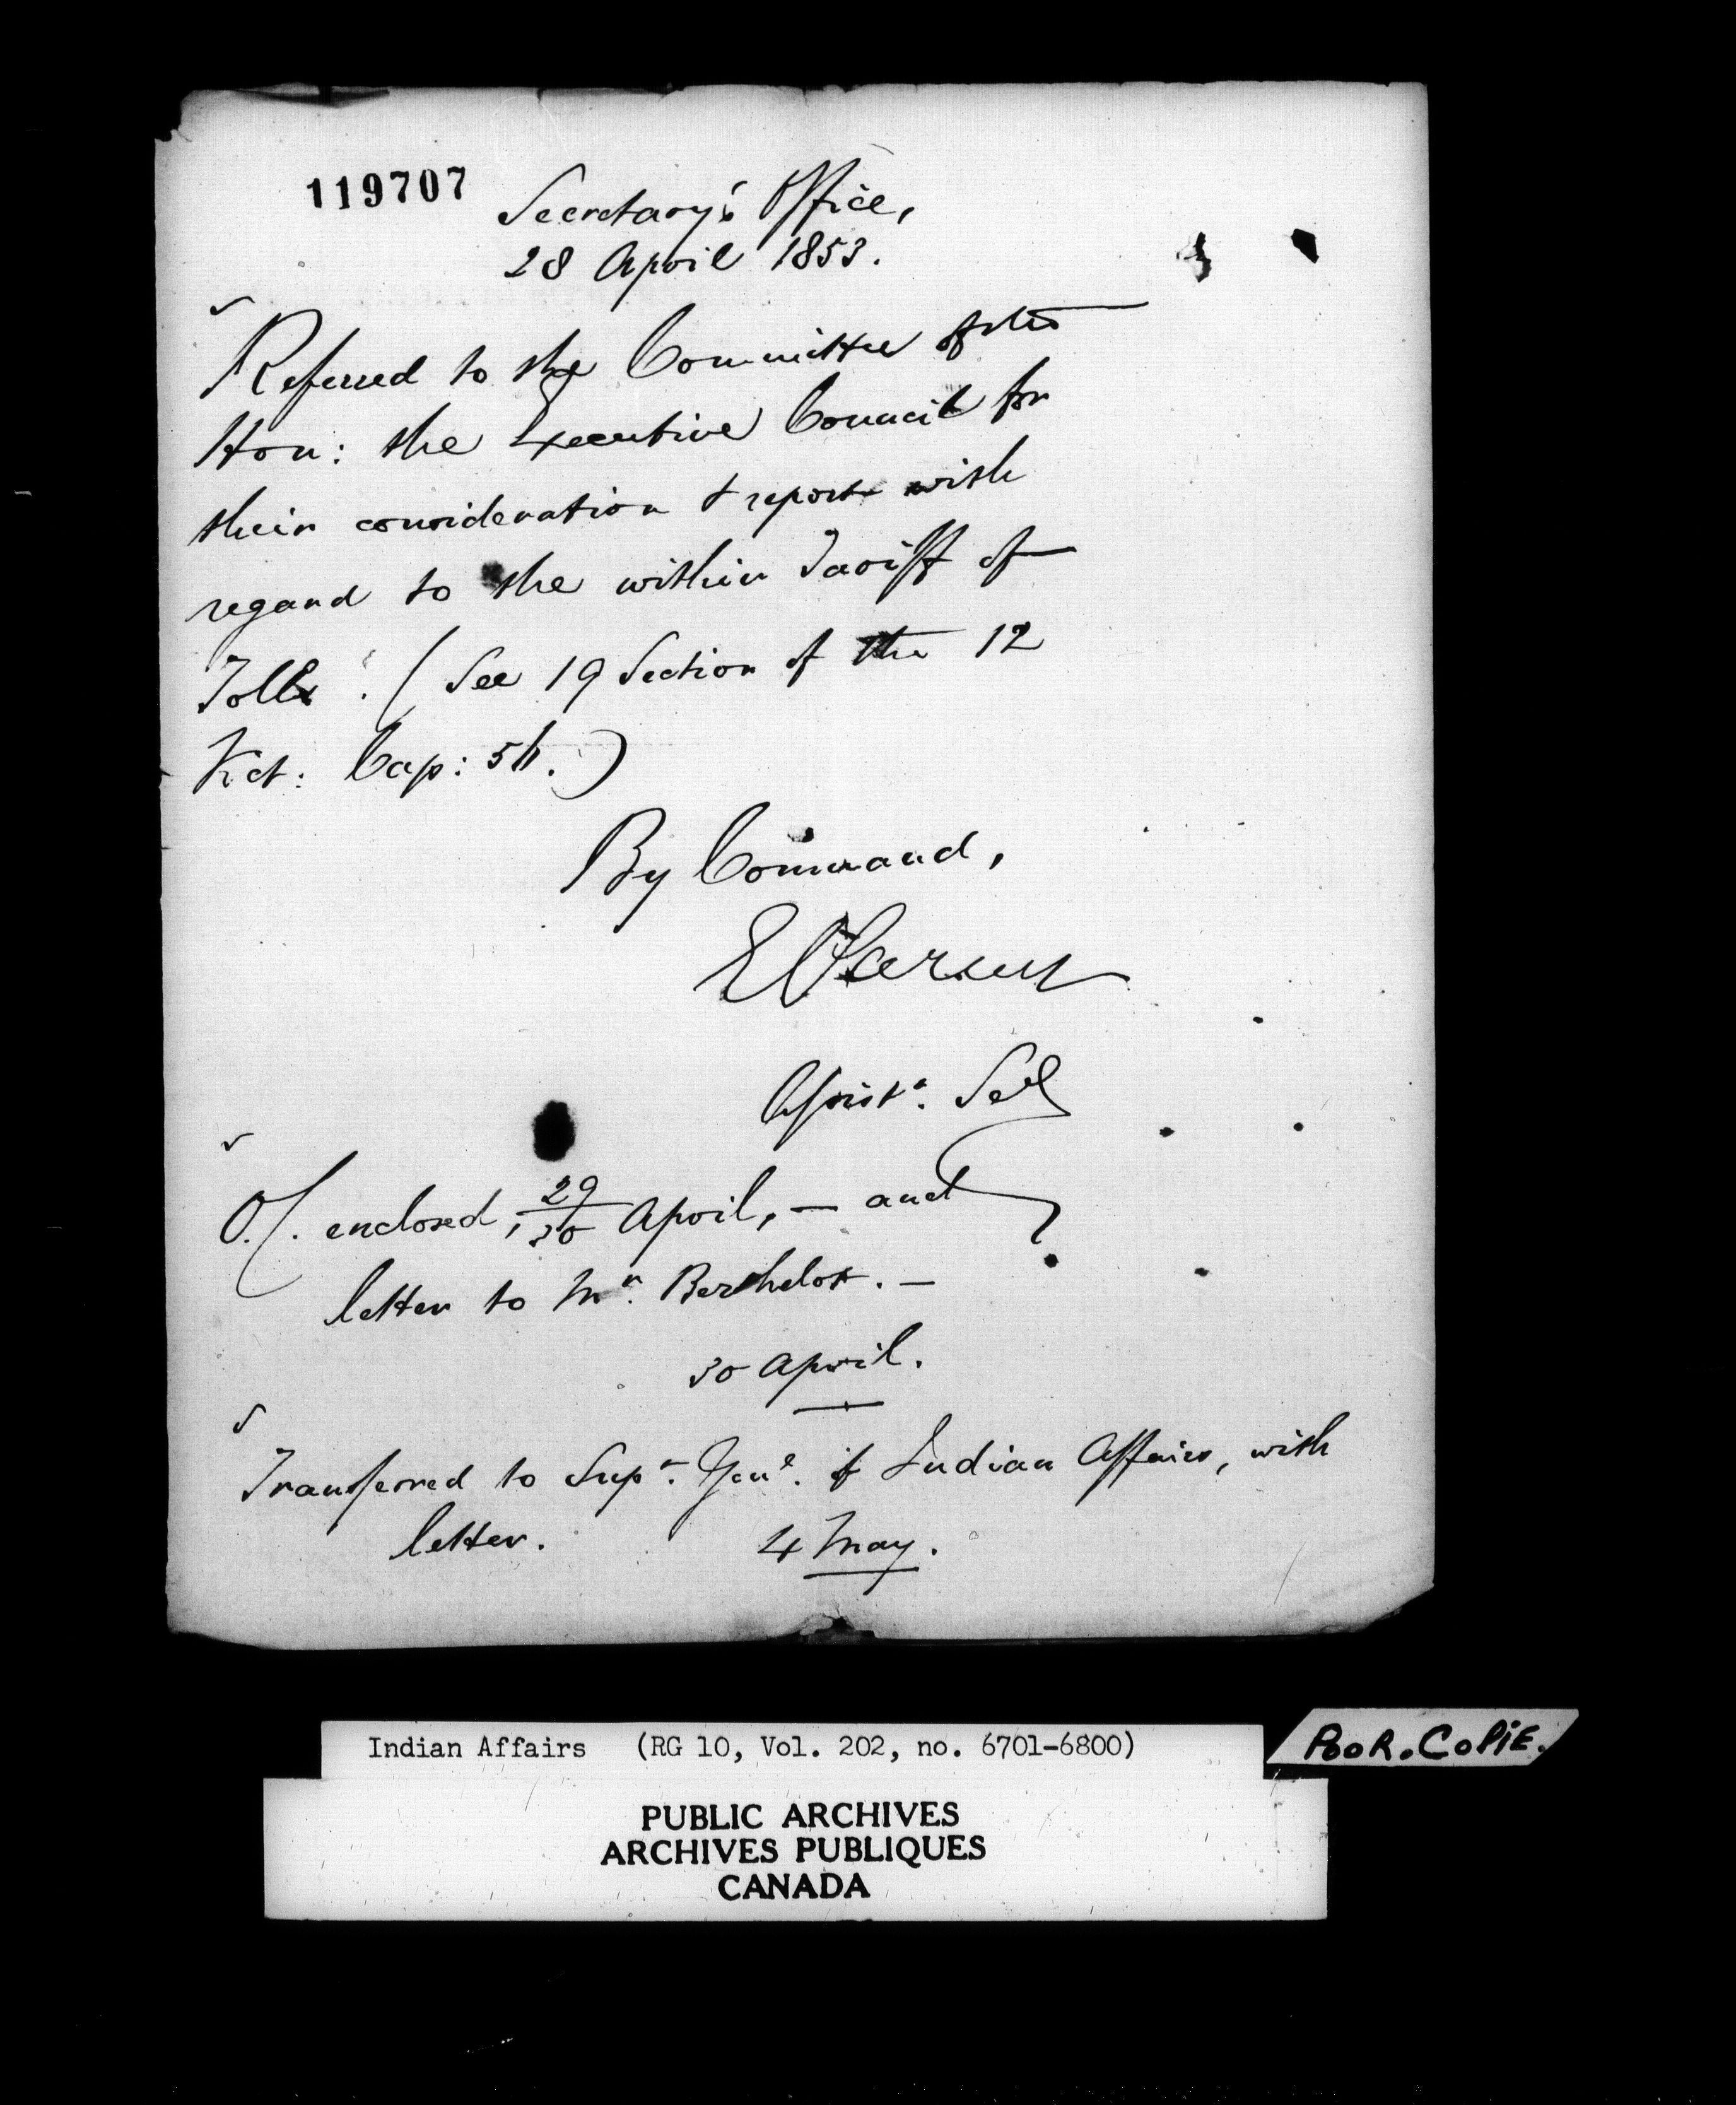 119707
Secretary's Office,
28 April 1853.
Referred to the Committee of the
Hon: the Executive Council for
their consideration & report with
regard to the within Tariff of
Tolls. (See 19 Section of the 12
Vict: Cap: 56.)
By Command,
E Parent
Assist. Sec
O.C. enclosed, 29/30 April, — and
letter to Mr. Berthelot. —
30 April.
Transferred to Supt. Genl. of Indian Affairs, with
letter. 4 May.
Indian Affairs (RG 10, Vol. 202, no. 6701-6800)
POOR. COPIE.
PUBLIC ARCHIVES
ARCHIVES PUBLIQUES
CANADA